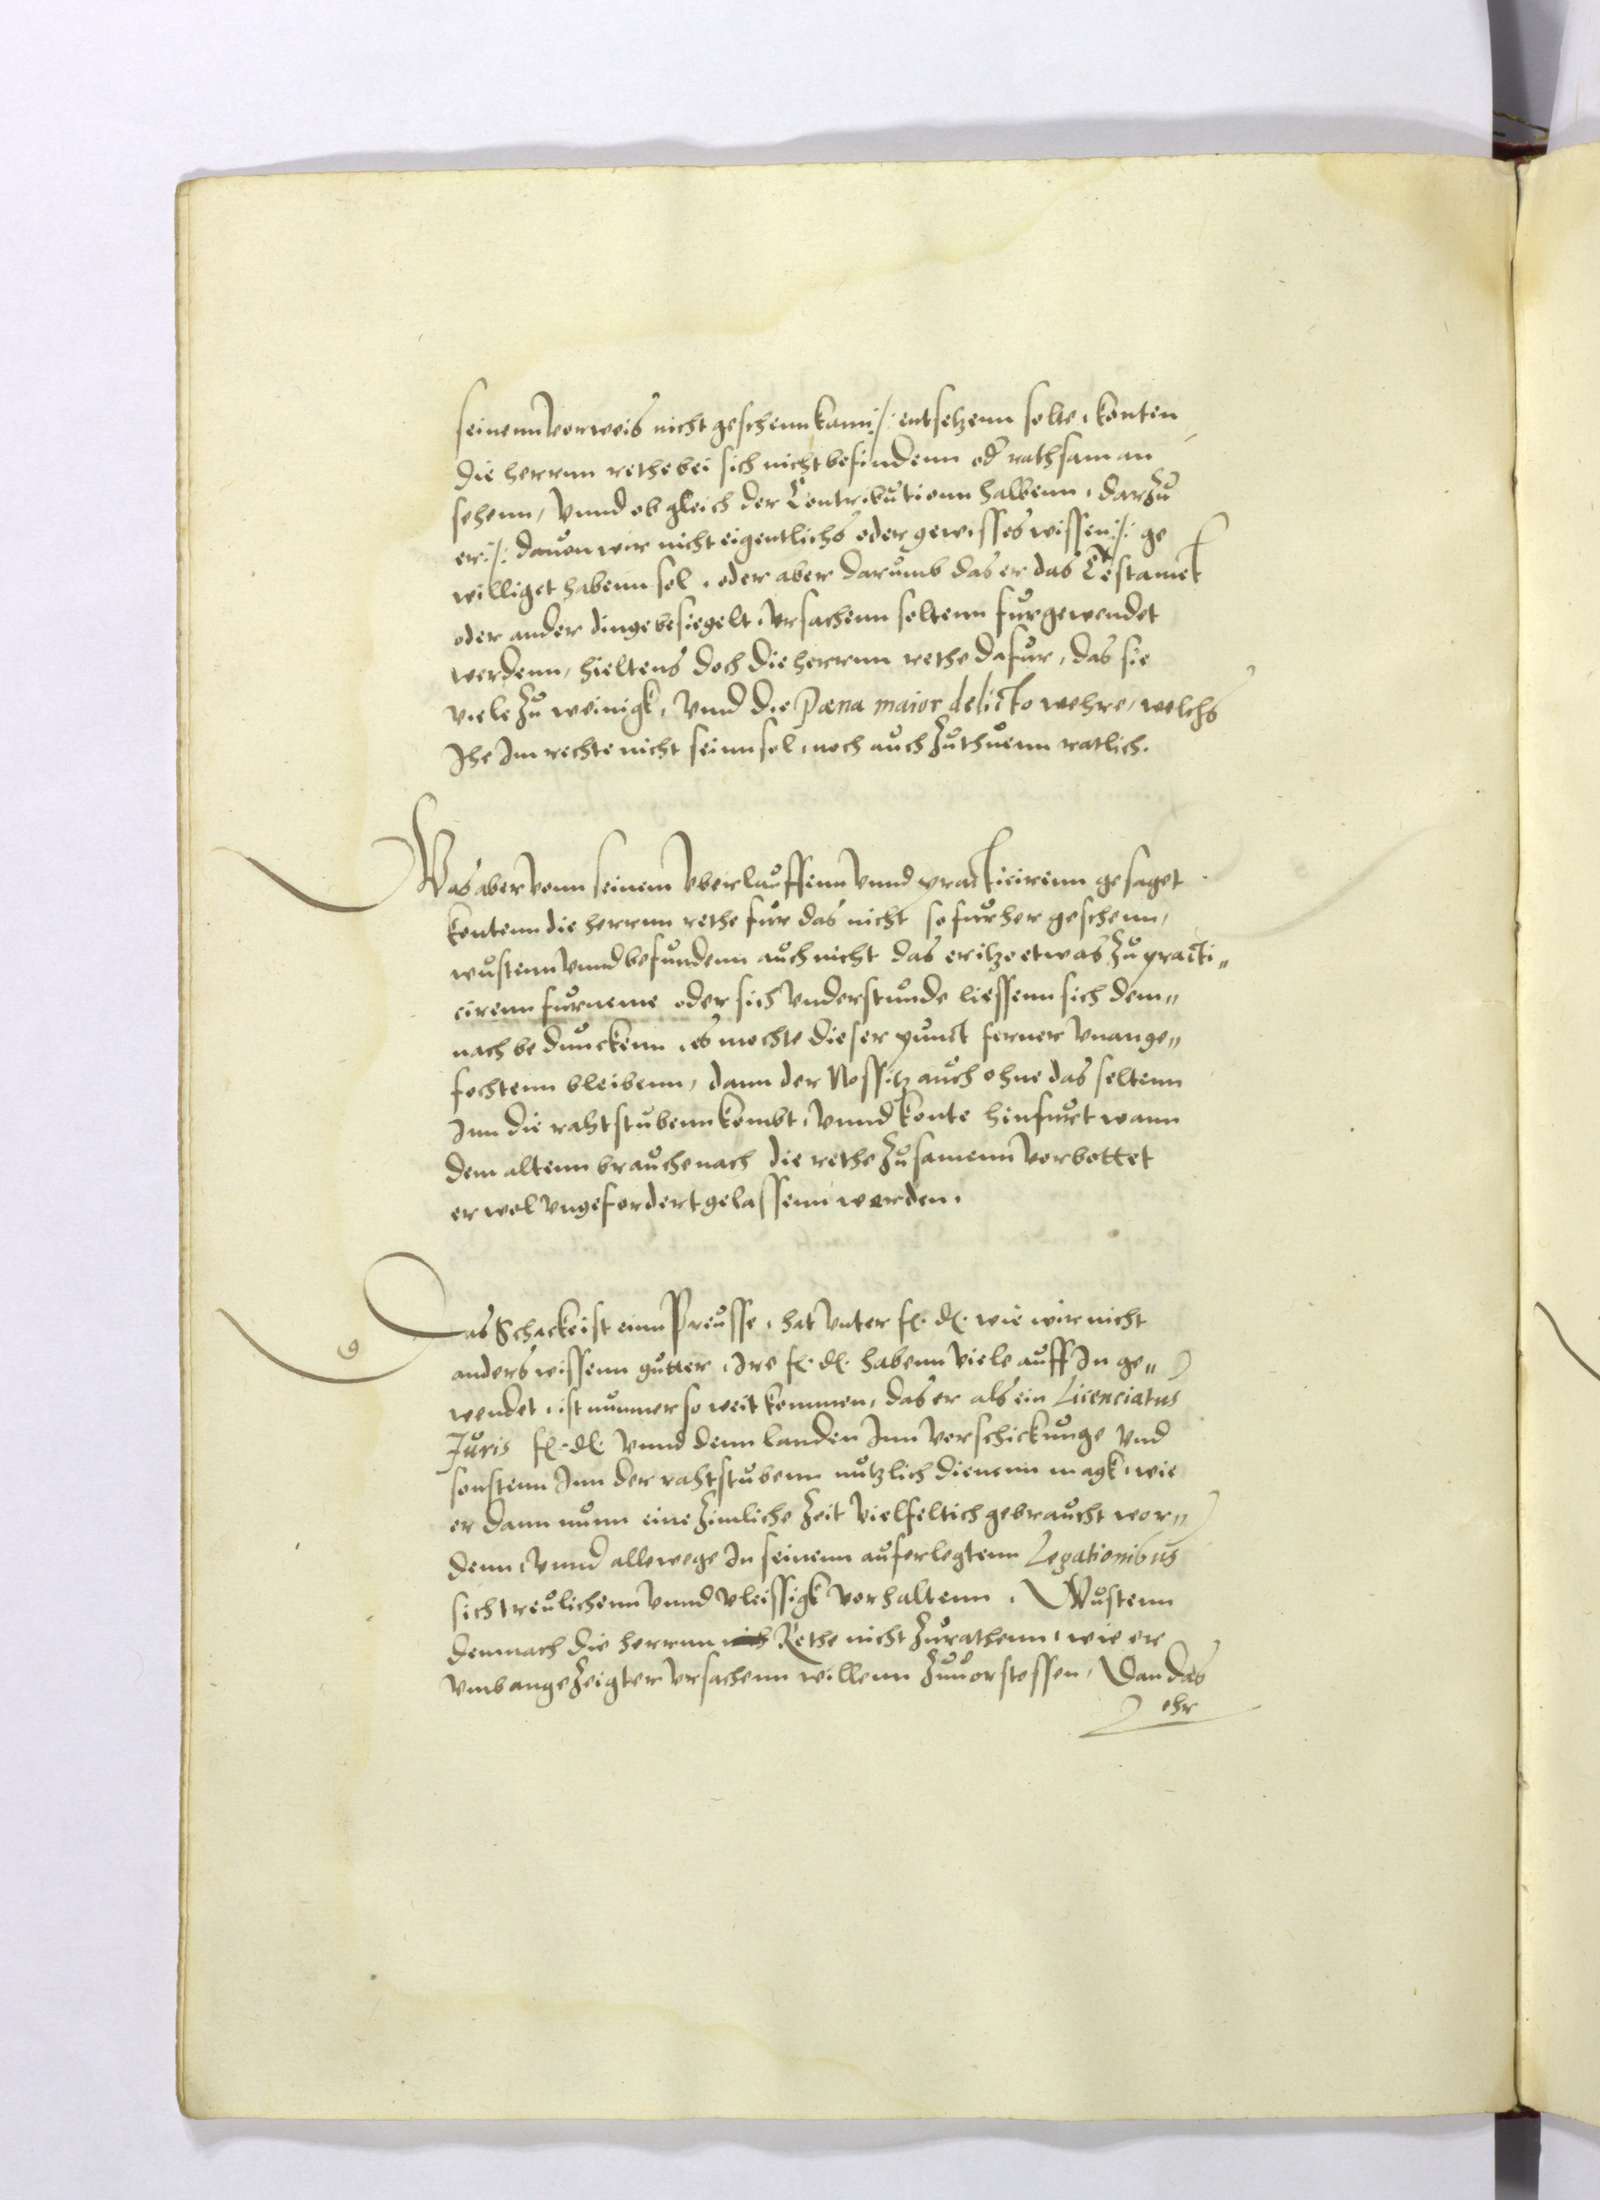 seinenn Vorweis nicht geschenn kann :/: entsetzenn solte, konten
die herrnn rethe bei sich nicht befindenn od rathsam an
sehenn, Vnnd ob gleich der Contributionn halbenn, darzu
er :/: dauon wir nicht eigentlichs oder gewisses wissen :/: ge
williget habenn sol, oder aber darumb das er das Testamet
oder ander dinge besiegelt, Vrsachenn soltenn furgewendet
werdenn, hieltens doch die herrnn rethe dafur, das sie
viele zu weinigk, Vnnd die Pæna maior delicto wehre, welchs
Jhe Jm rechte nicht seinn sol, noch auch zuthuenn ratlich.
Was aber vonn seinem Vberlauffenn Vnnd practicirenn gesaget
kontenn die herrnn rethe fur das nicht so furher geschenn,
wustenn Vnnd befundenn auch nicht das er itzo etwas zu practi„
cirenn furneme oder sich Vnderstunde liessenn sich dem„
nach bedunckenn, es mochte dieser punct ferner Vnange„
fochtenn bleibenn, dann der Nossitz auch ohne das seltenn
Jnn die rahtstubenn kombt, Vnnd konte hinfurt wann
dem altenn brauche nach die rethe zusamenn Vorbottet
er wol Vngefordert gelassenn werden.
Das Schacke ist einn Preusse, hat Vnter f. d. wie wir nicht
anders wissenn gutter, Jre f. d. habenn viele auff Jn ge„
wendet, ist nunmer so weit kommen, das er als ein Licenciatus
Juris f. d. Vnnd denn landen Jnn Vorschickunge Vnd
sonstenn Jnn der rahtstubenn nutzlich dienenn magk, wie
er dann nunn eine zimliche zeit vielfeltich gebraucht wor„
denn, Vnnd allewege Jn seinenn auferlegtenn Legationibus
sich treulichenn Vnnd vleissigk vorhaltenn. Wustenn
demnach die herrnn Rethe nicht zurathenn, wie er
Vmb angezeigter Vrsachenn willenn zuuorstossen, Dan das
ehr